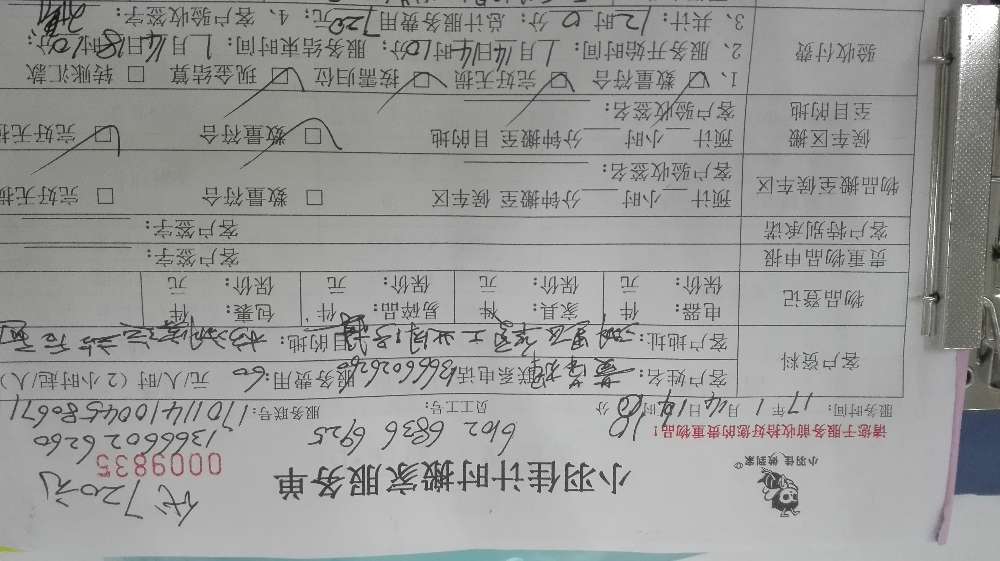 小羽佳计时搬家服务单
小羽佳 搬到家
0009835
收720元
请您于服务前收拾好您的贵重物品!
6102 6836 6925
13666026260
服务时间: 17年1月14日14时10分 员工号: 服务联号: 1701141004580671
客户资料
客户姓名: 联系电话: 13666026260 服务费用: 60 元/人/时(2小时起/人)
客户地址: 目的地:
物品登记
电器: 件 家具: 件 易碎品: 件 包裹: 件
保价: 元 保价: 元 保价: 元 保价: 元
贵重物品申报 客户签字:
客户特别承诺 客户签字:
物品搬至候车区
预计 小时 分钟搬至候车区 □ 数量符合 □ 完好无损
客户验收签名:
候车区搬至目的地
预计 小时 分钟搬至目的地 □ 数量符合 □ 完好无损
客户验收签名:
验收付费
1、□ 数量符合 □ 完好无损 □ 按需归位 □ 现金结算 □ 转账汇款
2、服务开始时间: 1月14日14时10分; 服务结束时间: 1月14日18时10分;
3、共计: 12时0分; 总计服务费用720元; 4、客户验收签字: